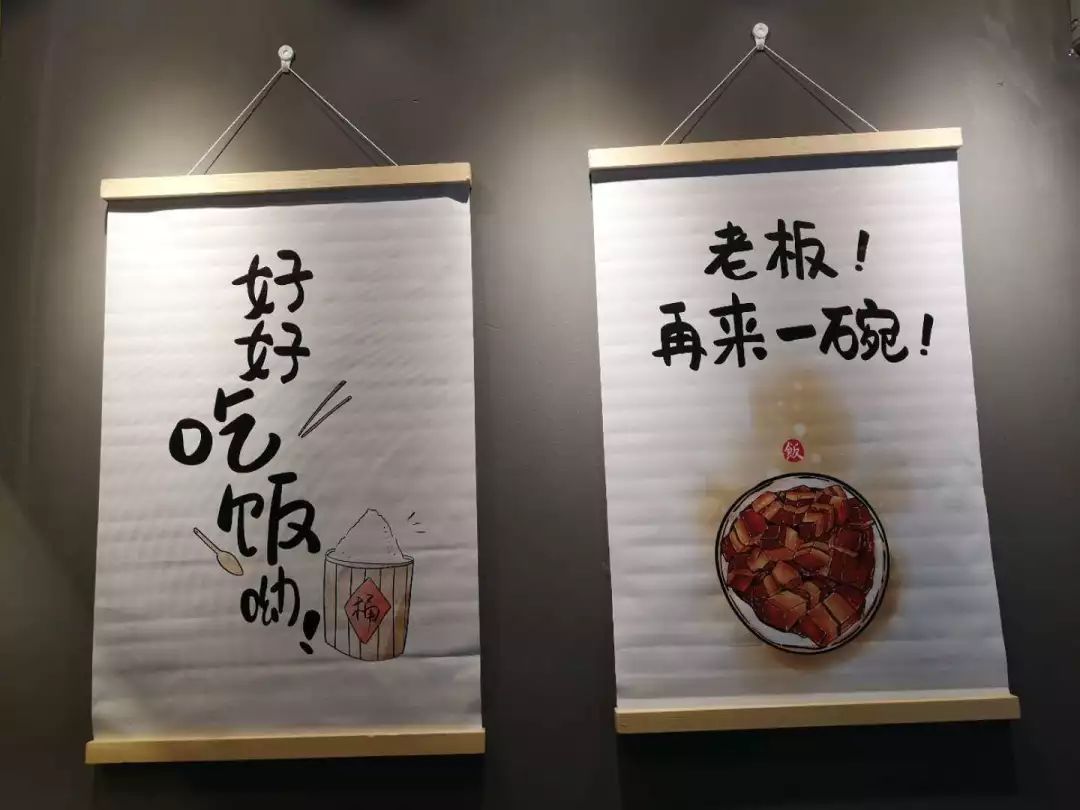 好好吃饭呦！
桶
老板！
再来一碗！
飯